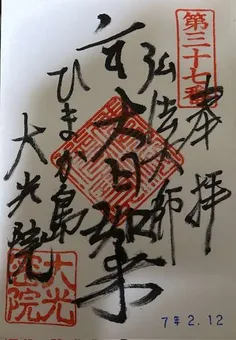 第三十七番
奉拝
弘法大師
大日如来
ひまか島
大光院
大光
密院
7年2.12